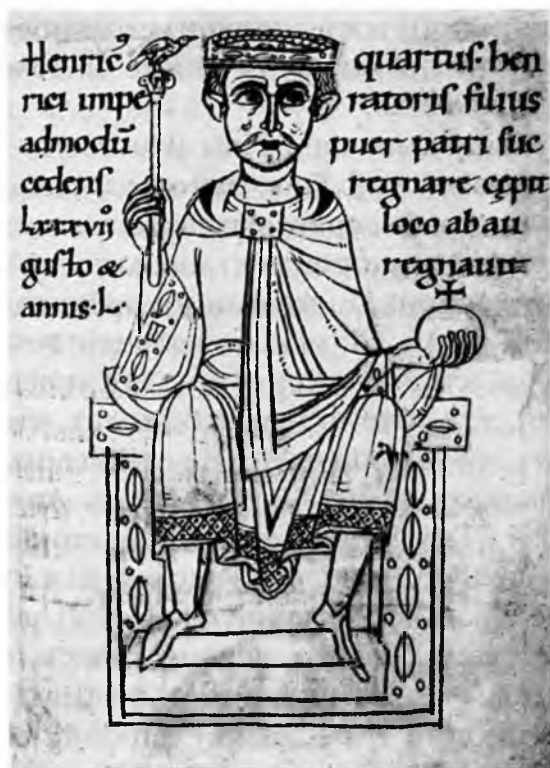 Henric⁹ quartus· hen
rici impe ratoris filius
admodū puer patri suc
cedens regnare cępit
lxxxvii° loco ab au
gusto & regnauit
annis· l·